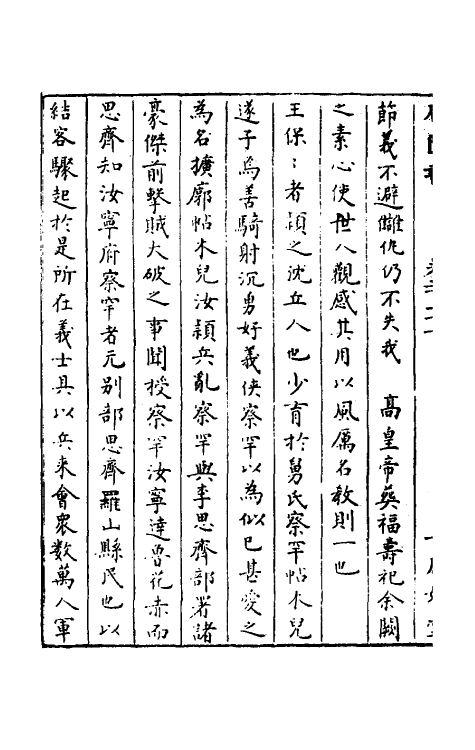 節義不避讎仇仍不失我　高皇帝葵福壽祀余闕
之素心使世人觀感其用以風厲名教則一也
王保〻者潁之沈丘人也少育於舅氏察罕帖木兒
遂子焉善騎射沉勇好義俠察罕以為似已甚愛之
為名擴廓帖木兒汝潁兵亂察罕與李思齊部署諸
豪傑前擊賊大破之事聞授察罕汝寧達魯花赤而
思齊知汝寧府察罕者元别部思齊羅山縣民也以
結客驟起於是所在義士具以兵来會衆数萬人軍